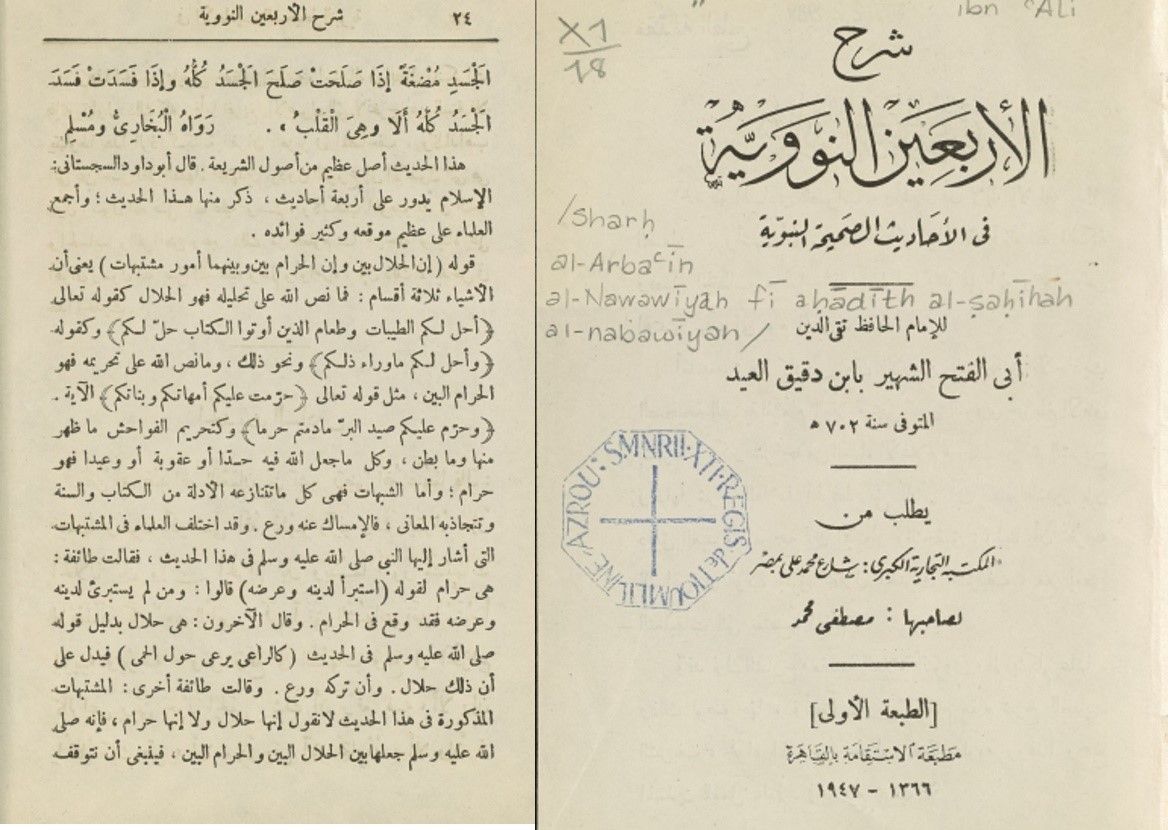 شرح الأربعين النووية ٢٤
الجَسَدِ مُضْغَةً إِذَا صَلَحَتْ صَلَحَ الجَسَدُ كُلُّهُ وإِذَا فَسَدَتْ فَسَدَ
الجَسَدُ كُلُّهُ أَلَا وهِىَ الْقَلْبُ » . رَوَاهُ الْبُخَارِىُّ ومُسْلِم
هذا الحديث أصل عظيم من أصول الشريعة . قال أبوداود السجستانى :
الإسلام يدور على أربعة أحاديث ، ذكر منها هـذا الحديث ؛ وأجمع
العلماء على عظيم موقعه وكثير فوائده .
قوله ( إن الحلال بين وإن الحرام بين وبينهما أمور مشتبهات ) يعنى أن
الأشياء ثلاثة أقسام : فما نص الله على تحليله فهو الحلال كقوله تعالى
﴿ أحل لـكم الطيبات وطعام الذين أوتوا الـكتاب حلّ لـكم ﴾ وكقوله
﴿ وأحل لـكم ماوراء ذلـكم ﴾ ونحو ذلك ، ومانص الله على تحريمه فهو
الحرام البين ، مثل قوله تعالى ﴿ حرّمت عليكم أمهاتكم وبناتكم ﴾ الآية .
﴿ وحرّم عليـكم صيد البرّ مادمتم حرما ﴾ وكتحريم الفواحش ما ظهر
منها وما بطن ، وكل ماجعل الله فيه حـدّا أو عقوبة أو وعيدا فهو
حرام ؛ وأما الشبهات فهى كل ماتتنازعه الأدلة من الـكتاب والسنة
وتتجاذبه المعانى ، فالإمساك عنه ورع . وقد اختلف العلماء فى المشتبهات
التى أشار إليها النبى صلى الله عليه وسلم فى هذا الحديث ، فقالت طائفة :
هى حرام لقوله ( استبرأ لدينه وعرضه ) قالوا : ومن لم يستبرئ لدينه
وعرضه فقد وقع فى الحرام . وقال الآخرون : هى حلال بدليل قوله
صلى الله عليه وسلم فى الحديث ( كالراعى يرعى حول الحمى ) فيدل على
أن ذلك حلال . وأن تركه ورع . وقالت طائفة أخرى : المشتبهات
المذكورة فى هذا الحديث لانقول إنها حلال ولا إنها حرام ، فإنه صلى
الله عليه وسلم جعلها بين الحلال البين والحرام البين ، فينبغى أن نتوقف
ibn ʿAli
X1
18
شرح
الأربَعِين النَّوَوِيَّة
فى الأحاديث الصحيحة النبوية
/Sharḥ
al-Arbaʿīn
al-Nawawīyah fī aḥādīth al-ṣaḥīḥah
al-nabawīyah/
للإمام الحافظ تقى الدين
أبى الفتح الشهير بابن دقيق العيد
المتوفى سنة ٧٠٢ ه
SMNRII·XTI·REGIS de TIOUMLILINE AZROU:
يطلب من
المكتبة التجارية الكبرى : شارع محمد على بمصر
لصاحبها : مصطفى محمد
[الطبعة الأولى]
مَطبَعَة الاسْتِقَامَة بِالقَاهِرَة
١٣٦٦ - ١٩٤٧